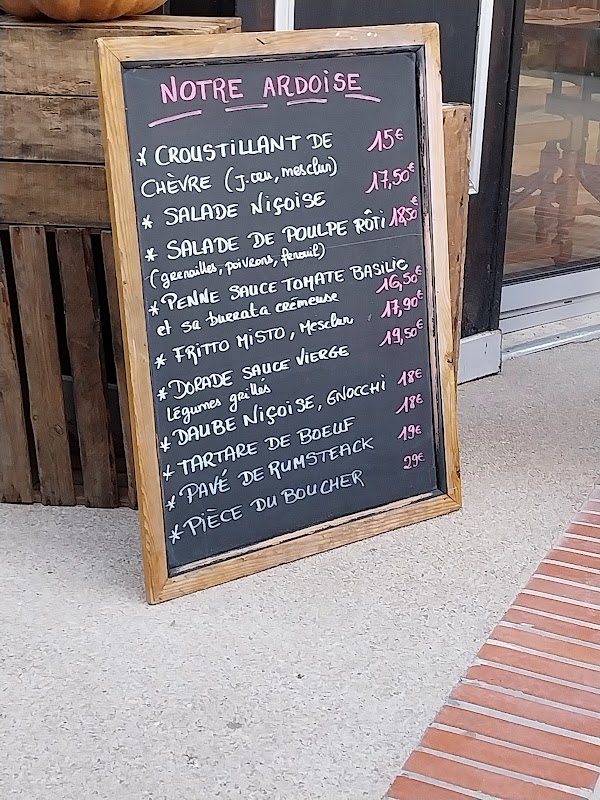 NOTRE ARDOISE
* CROUSTILLANT DE 15€
CHÈVRE (J. cru, mesclun)
* SALADE NIÇOISE 17,50€
* SALADE DE POULPE RÔTI 18,50€
(grenailles, poivrons, fenouil)
* PENNE SAUCE TOMATE BASILIC
et sa burrata crémeuse 16,50€
* FRITTO MISTO, Mesclun 17,90€
* DORADE SAUCE VIERGE 19,50€
Légumes grillés
* DAUBE NIÇOISE, GNOCCHI 18€
* TARTARE DE BOEUF 18€
* PAVÉ DE RUMSTEACK 19€
* PIÈCE DU BOUCHER 29€